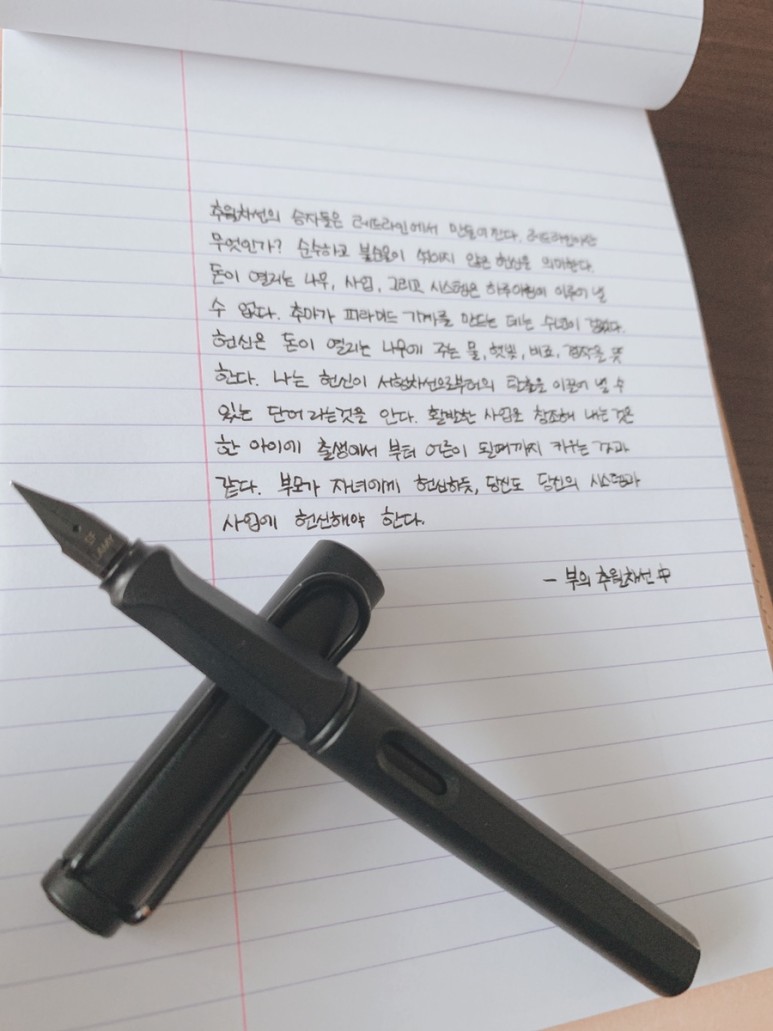 추월차선의 승자들은 레드라인에서 만들어진다. 레드라인이란
무엇인가? 순수하고 불순물이 섞이지 않은 헌신을 의미한다.
돈이 열리는 나무, 사업, 그리고 시스템은 하루아침에 이루어 낼
수 없다. 추마가 피라미드 기계를 만드는 데는 수년이 걸렸다.
헌신은 돈이 열리는 나무에 주는 물, 햇빛, 비료, 경작을 뜻
한다. 나는 헌신이 서행차선으로부터의 탈출을 이끌어 낼 수
있는 단어 라는것을 안다. 활발한 사업을 창조해 내는 것은
한 아이에 출생에서 부터 어른이 될때까지 키우는 것과
같다. 부모가 자녀에게 헌신하듯, 당신도 당신의 시스템과
사업에 헌신해야 한다.
- 부의 추월차선 中
EF
LAMY